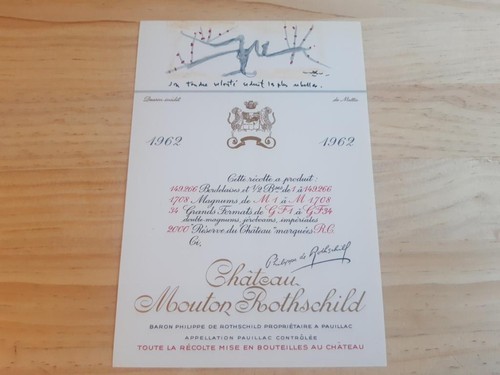 sa tendre volonté séduit la plus rebelle.
Dessin inédit de Matta
1962 1962
Cette récolte a produit:
149266 Bordelaises et 1/2 Bses de 1 à 149266
1708 Magnums de M 1 à M 1708
34 Grands Formats de G F 1 à G F 34
double magnums, jéroboams, impériales
2000 "Réserve du Château" marquées R.C.
Ci,
Philippe de Rothschild
Château
Mouton Rothschild
BARON PHILIPPE DE ROTHSCHILD PROPRIÉTAIRE A PAUILLAC
APPELLATION PAUILLAC CONTRÔLÉE
TOUTE LA RÉCOLTE MISE EN BOUTEILLES AU CHÂTEAU